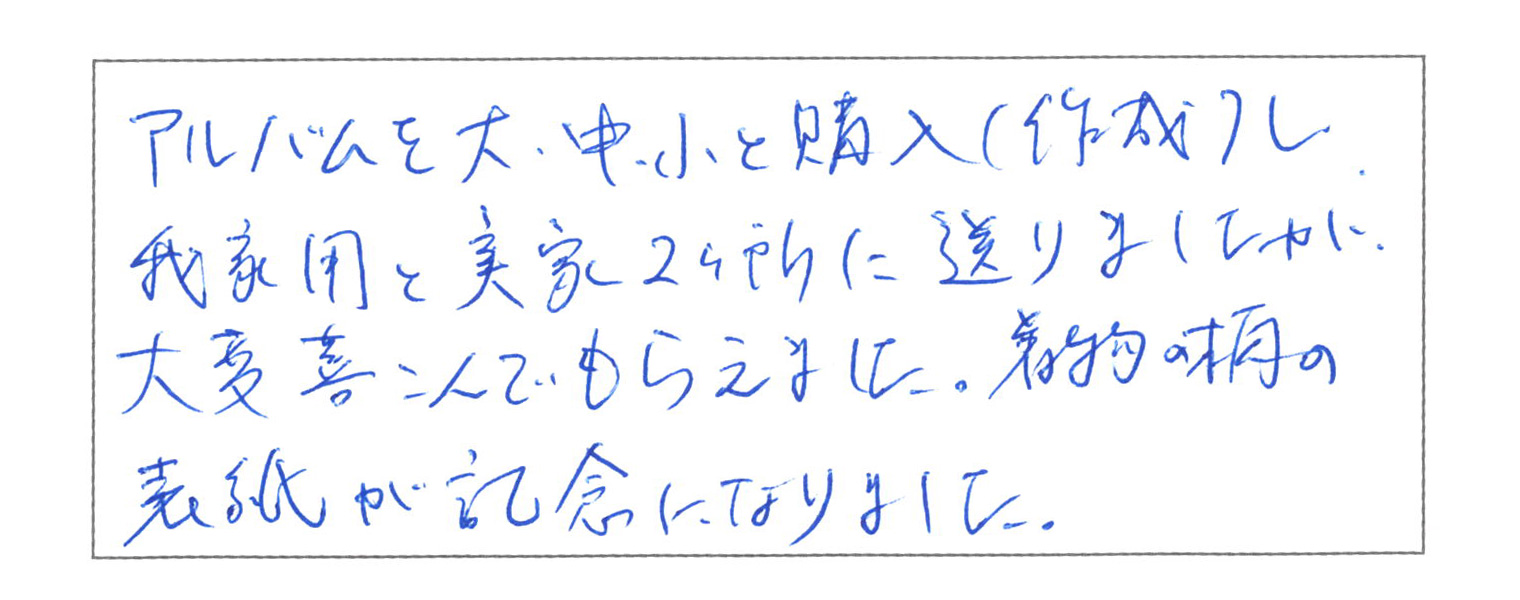 アルバムを大、中、小と購入(作成)し、
我家用と実家2ヶ所に送りましたが、
大変喜こんでもらえました。着物の柄の
表紙が記念になりました。